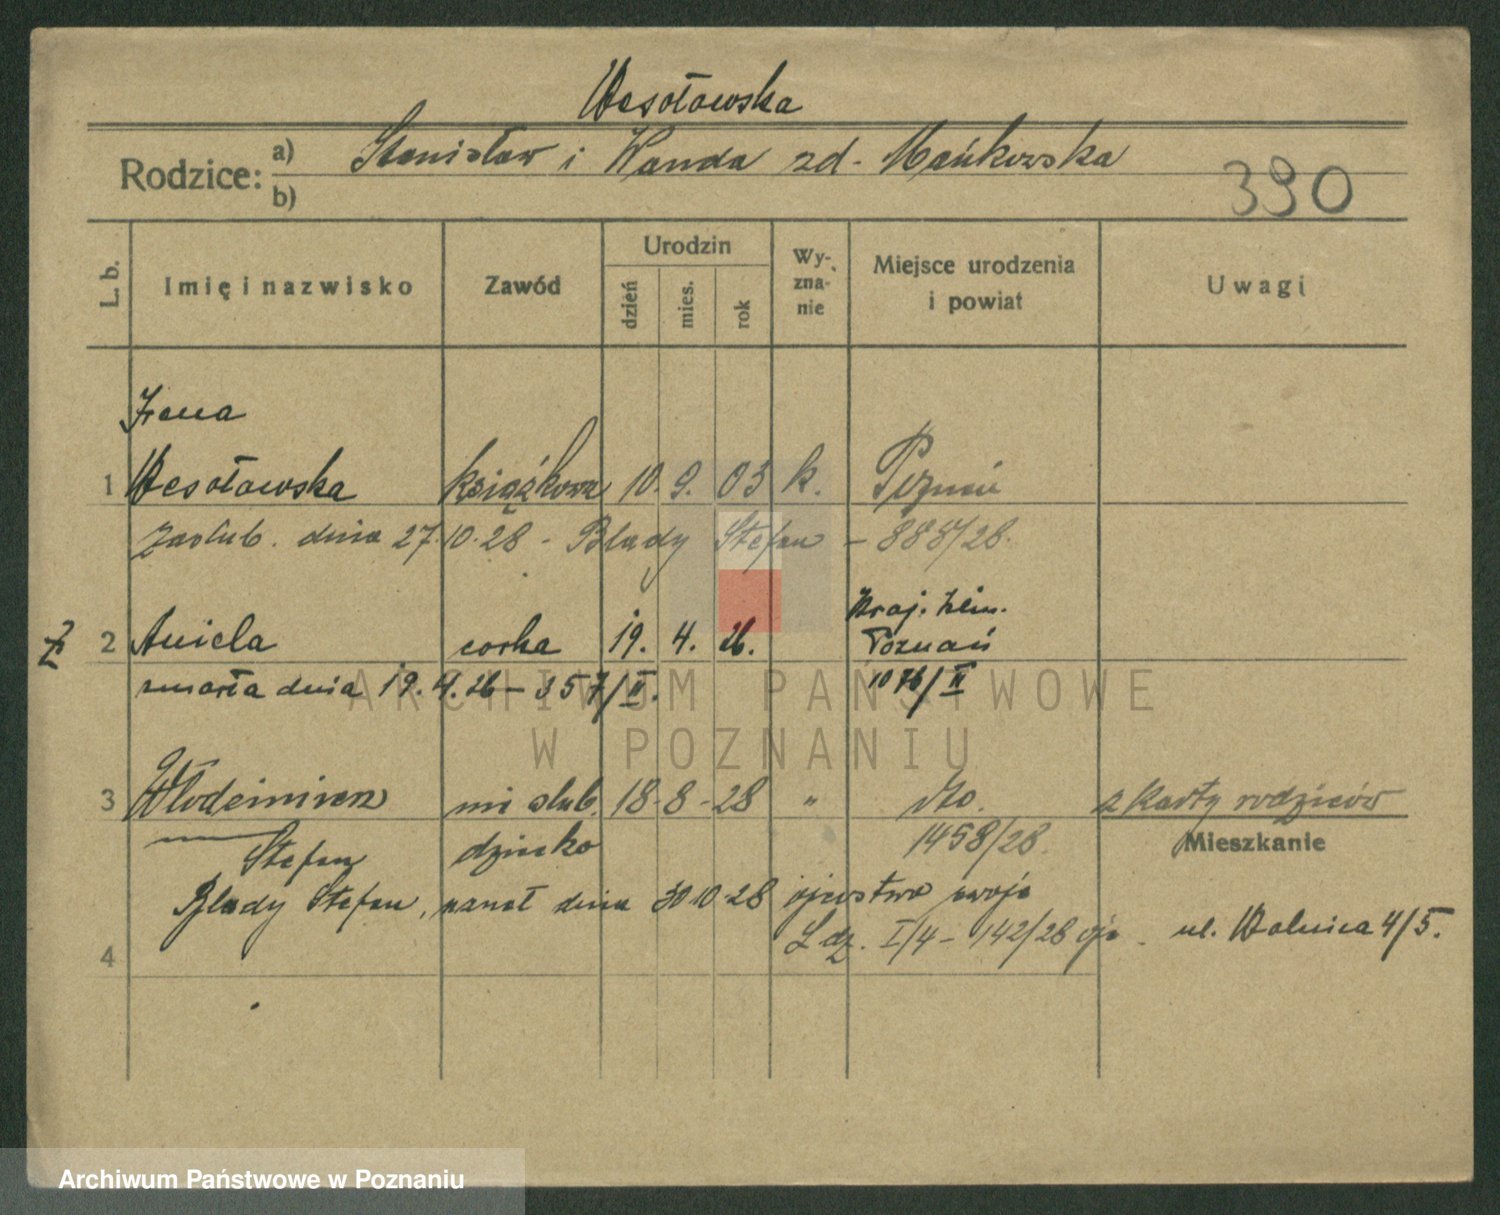 Wesołowska
Rodzice: a) Stanisław i Wanda zd. Mańkowska
b)
390
L. b.
Imię i nazwisko
Zawód
Urodzin
dzień
mies.
rok
Wy-
zna-
nie
Miejsce urodzenia
i powiat
Uwagi
Irena
1 Wesołowska książkowa 10. 9. 03 k. Poznań
Zaślub. dnia 27.10.28 - Blady Stefan - 888/28.
Kraj. klin.
2 Aniela corka 19. 4. 26. Poznań
zmarła dnia 19.4.26 - 357/II. 1076/II
3 Włodzimierz ni ślub. 18-8-28 " dto. z karty rodziców
Stefan dziecko 1458/28. Mieszkanie
Blady Stefan, uznał dnia 30.10.28 ojcostwo swoje
L dz. I/4 - 142/28 ul. Wolnica 4/5.
4
ARCHIWUM PAŃSTWOWE
W POZNANIU
Archiwum Państwowe w Poznaniu